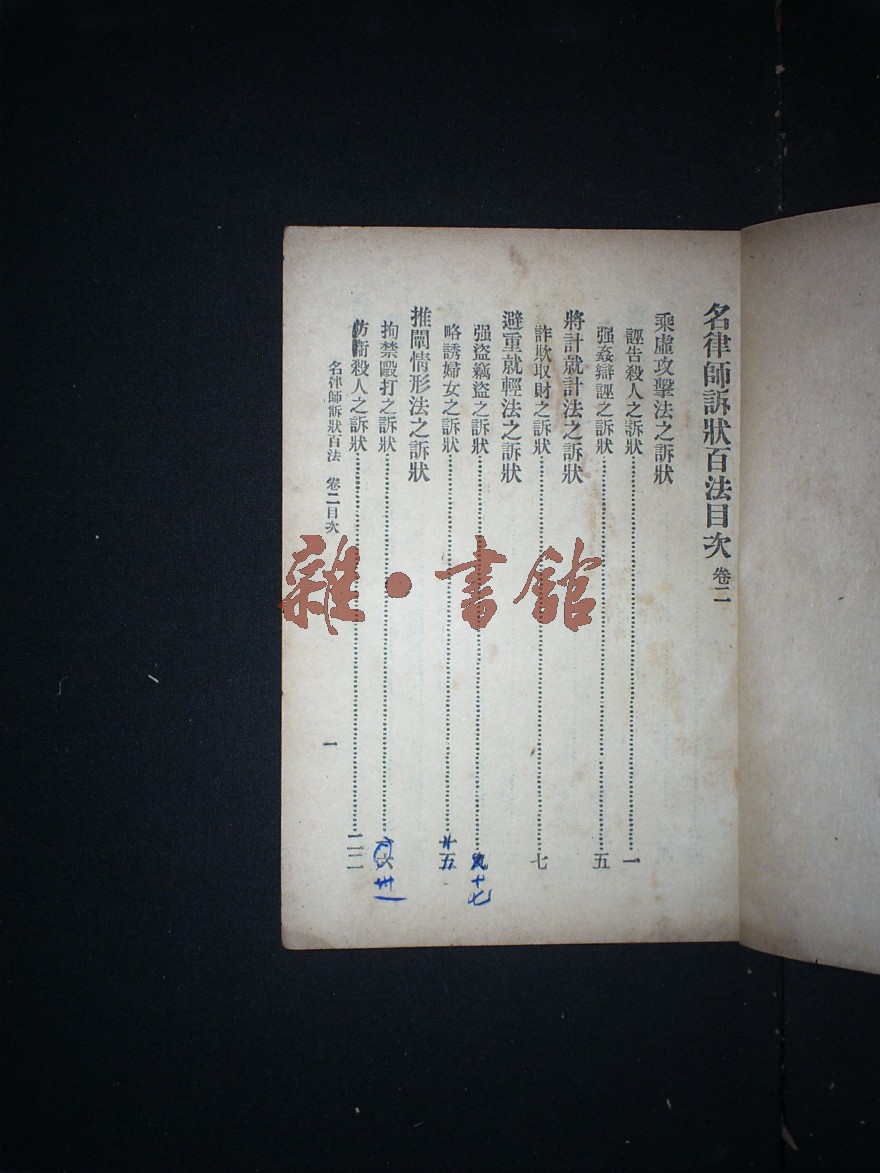 名律師訴狀百法目次 卷二
乘虛攻擊法之訴狀
誣告殺人之訴狀……一
强姦辯誣之訴狀……五
將計就計法之訴狀
詐欺取財之訴狀……七
避重就輕法之訴狀
强盜竊盜之訴狀……九十七
略誘婦女之訴狀……廿五
推闡情形法之訴狀
拘禁毆打之訴狀……卅一
防衛殺人之訴狀……二二
名律師訴狀百法 卷二目次
一
雜·書舘